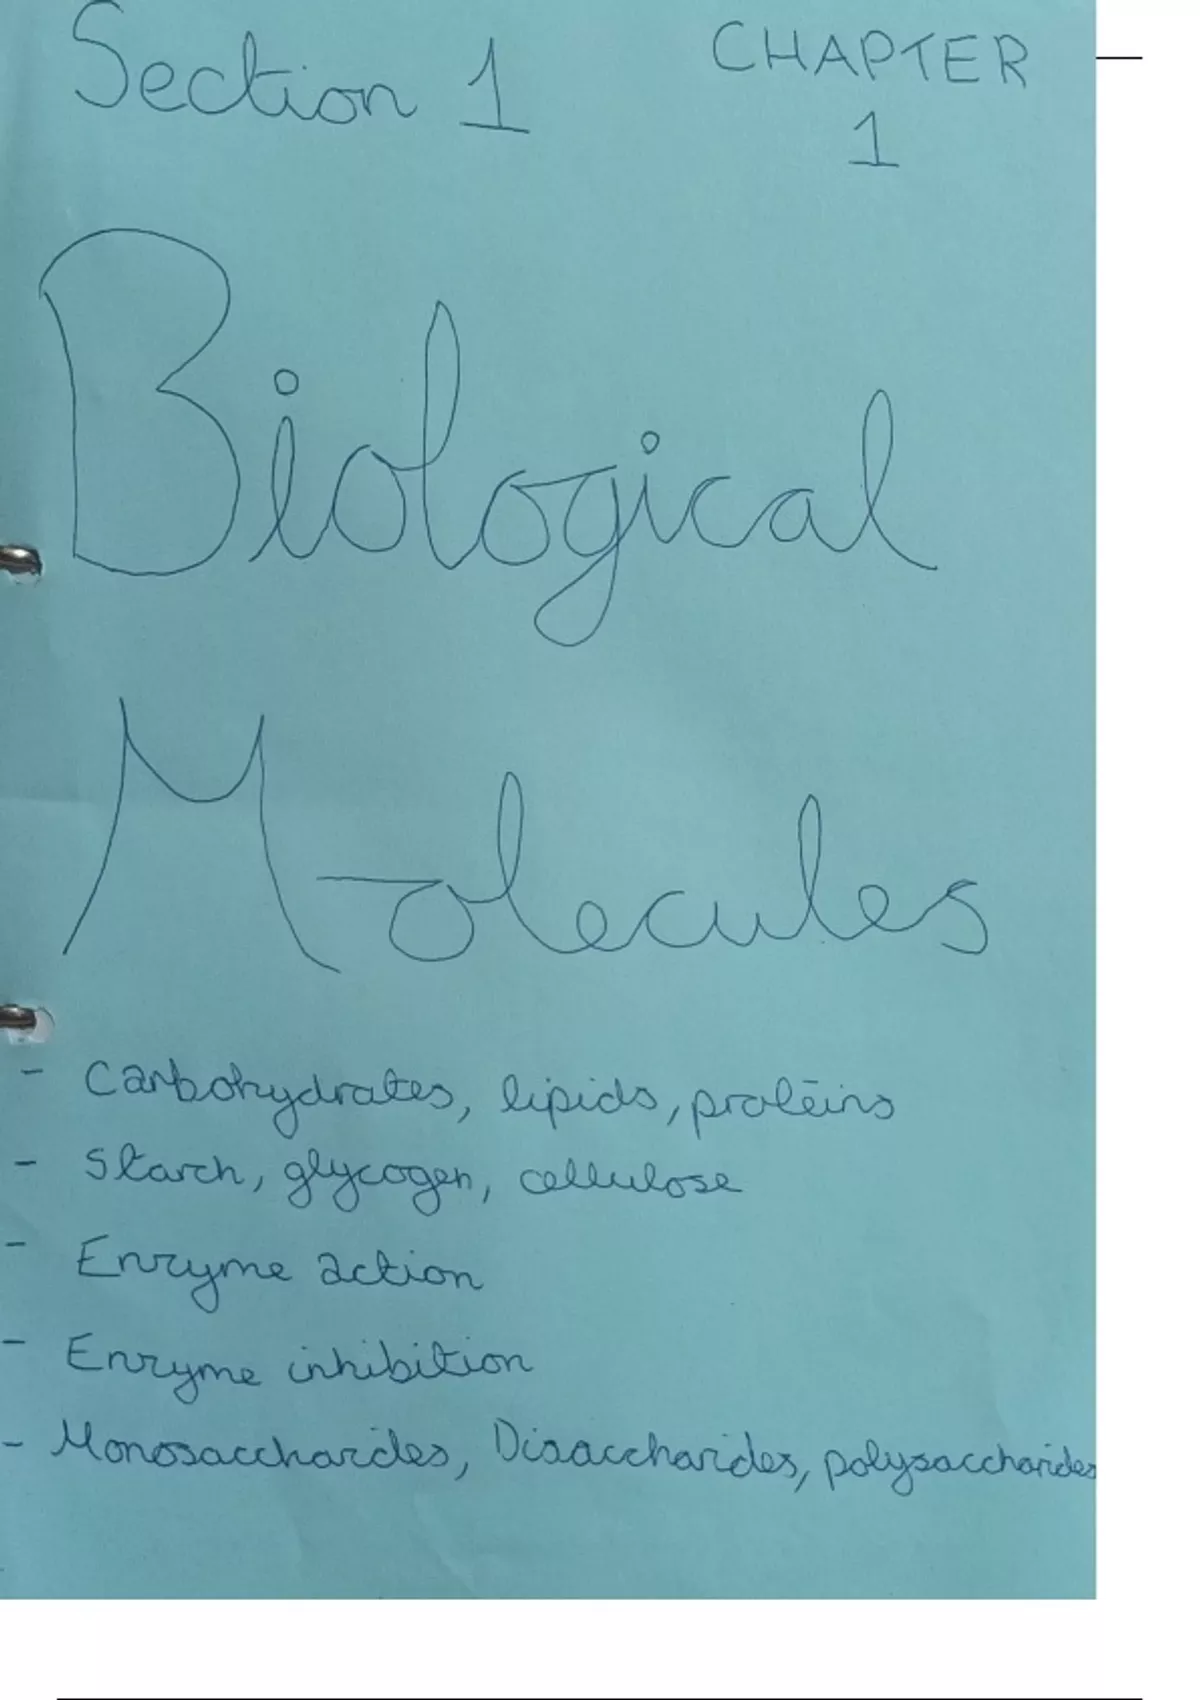 Section 1
CHAPTER
1
Biological
Molecules
- Carbohydrates, lipids, proteins
- Starch, glycogen, cellulose
- Enzyme action
- Enzyme inhibition
- Monosaccharides, Disaccharides, polysaccharides